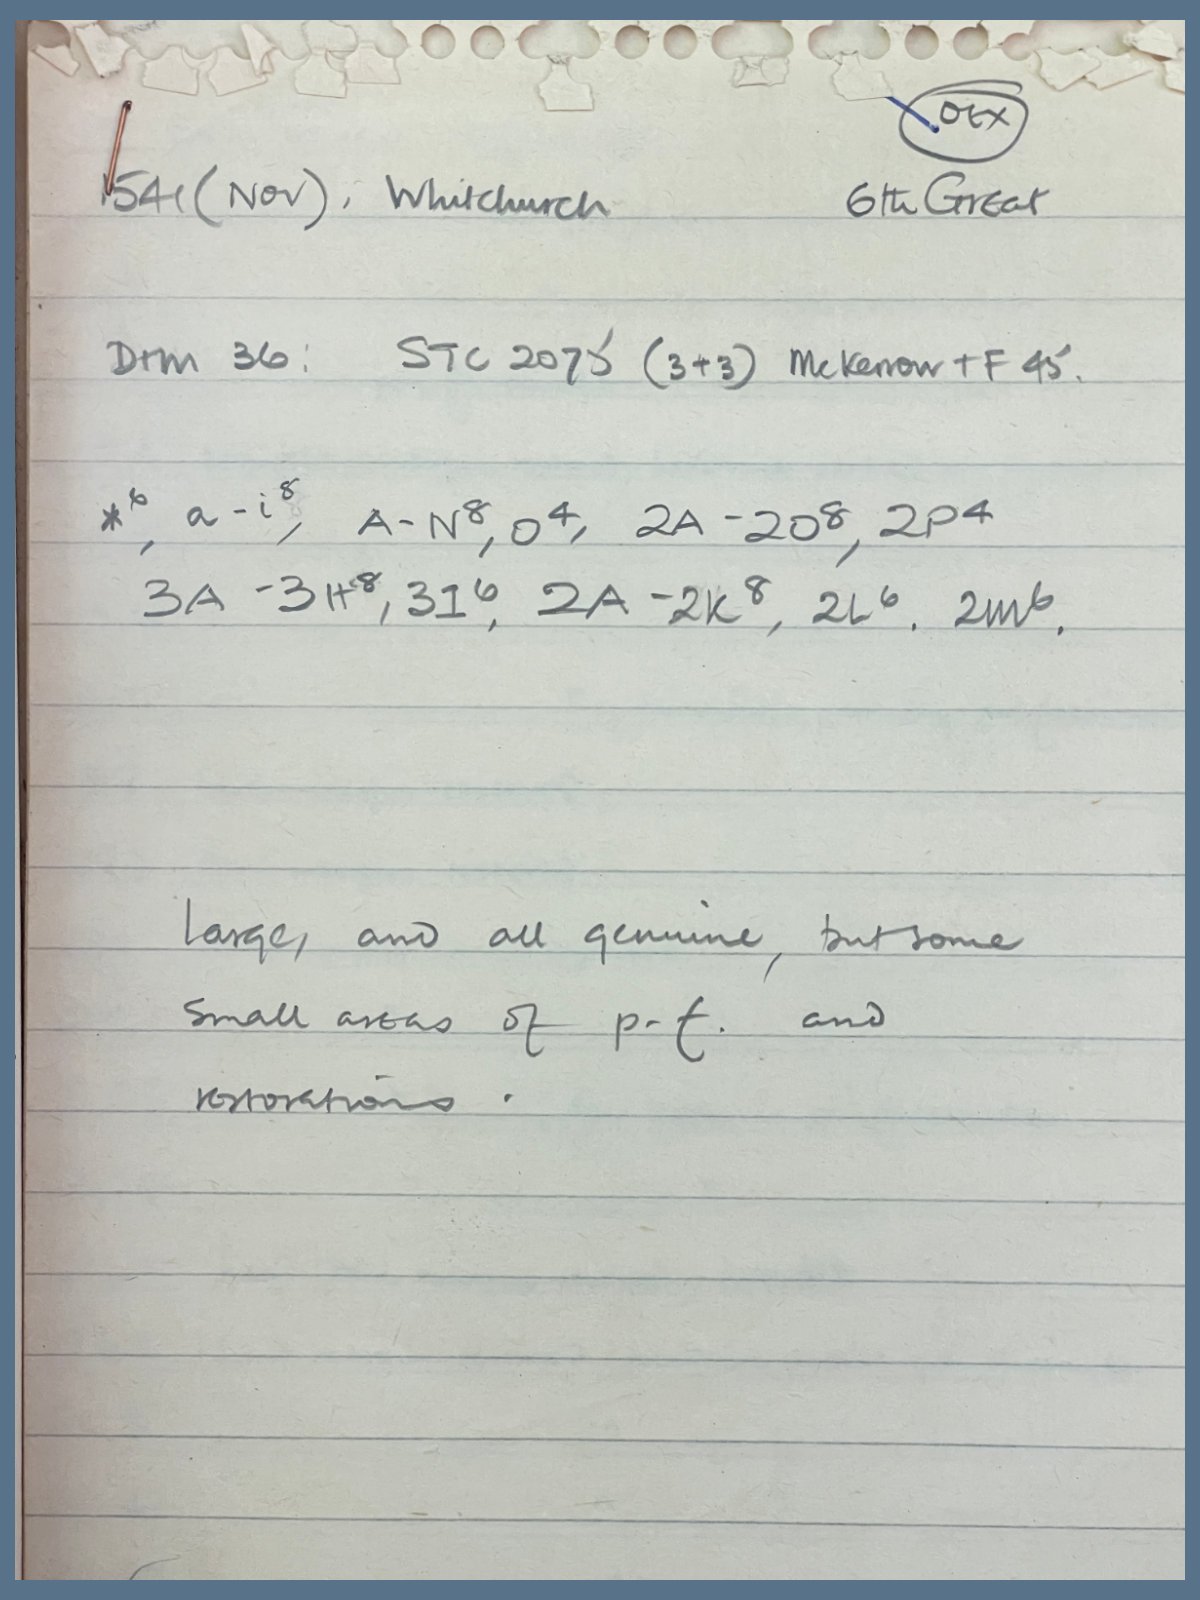 OTX
1541 (Nov), Whitchurch 6th Great
D+M 36: STC 2075 (3+3) McKerrow + F 45.
*⁶, a-i⁸, A-N⁸, O⁴, 2A-2O⁸, 2P⁴
3A-3H⁸, 3I⁶, 2A-2K⁸, 2L⁶. 2M⁶.
Large, and all genuine, but some
small areas of p-f. and
restorations.